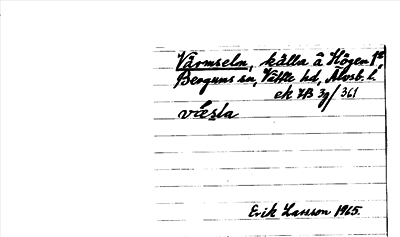 Värmseln, källa å Högen 1²,
Bergums sn, Vättle hd, Älvsb. l.
ek 7B 3g/361
væsla
Erik Larsson 1965.